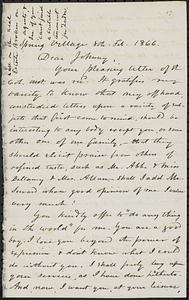 Spring Village 8th. Feb. 1866.
Dear Johnny,
Your pleasing letter of the
6th. met our view! It gratifies my
vanity to know that my off hand
unstudied letters upon a variety of sub-
jects that first come to mind, should be
interesting to any body except you or some
other one of my family — that they
should elicit praise from others of
refined taste, such as Mr. Abb. & Miss
Dellany & Mrs. Alcan. Shall I add Mr.
whose good opinions of me I value
very much!
You kindly offer to do anything
in the world for me. You are a good
boy. I love you beyond the power of
expression, & don't know what I could
do without you. I shall freely tax up
your services, as I have done hitherto.
And now I want you, at your leisure,